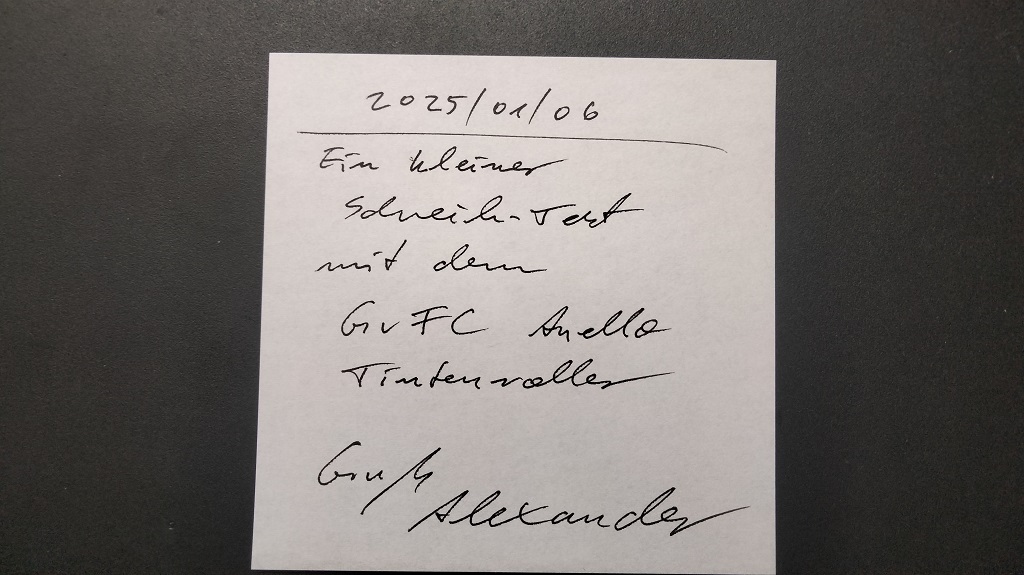 2025/01/06
Ein kleiner
Schreib-Text
mit dem
GvFC Anello
Tintenroller
Gruß
Alexander